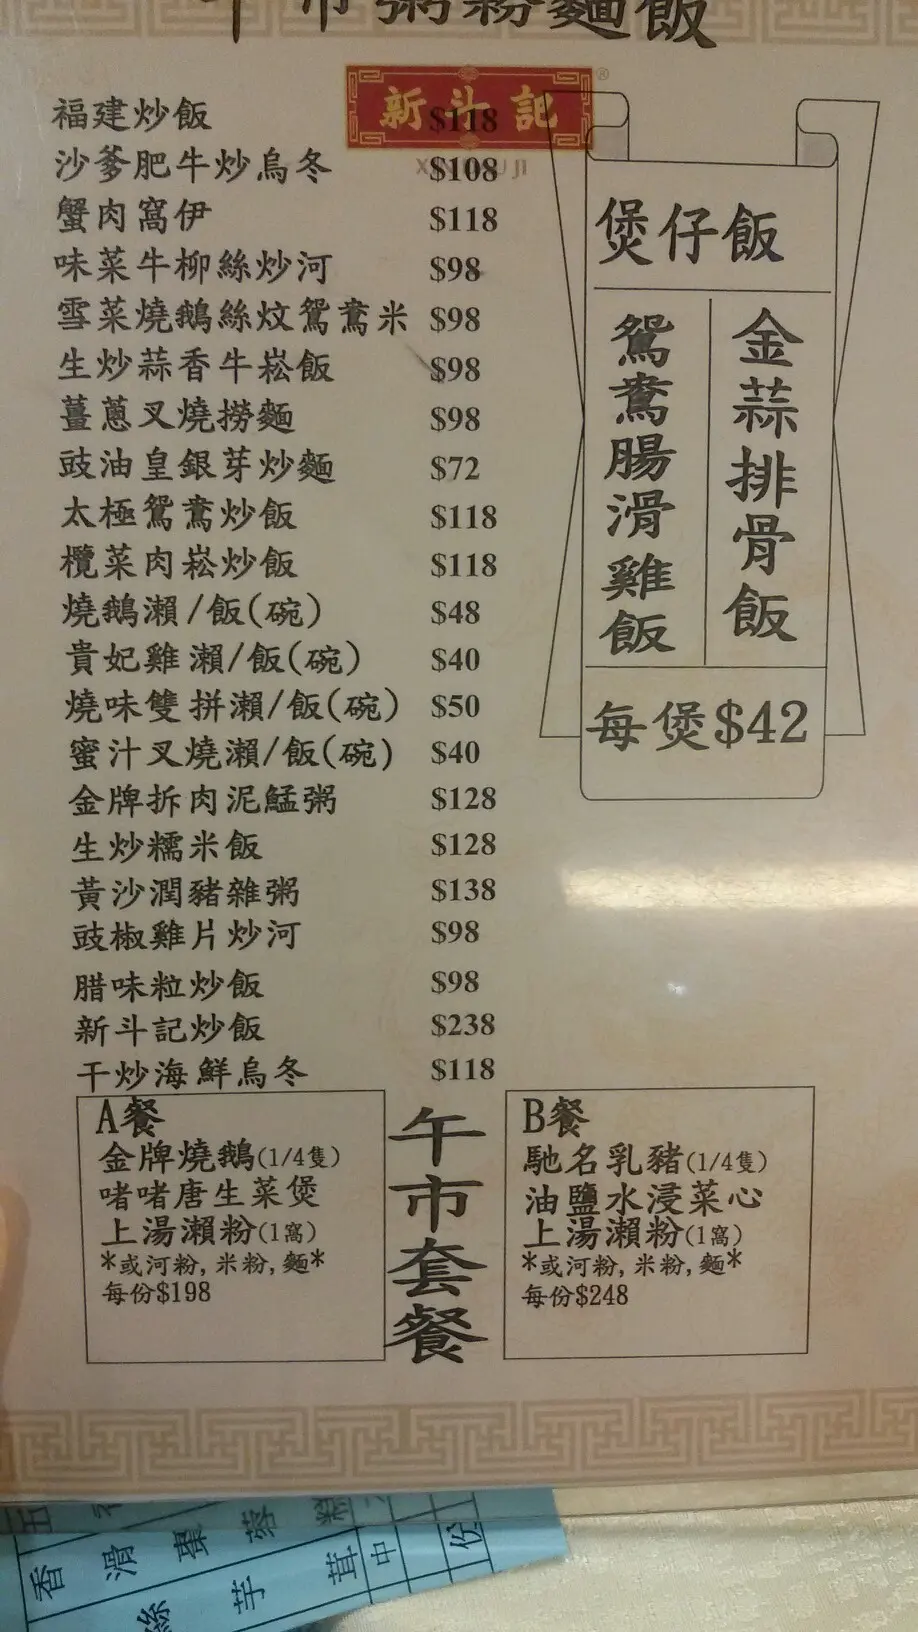 午市粥粉麵飯
新斗記
福建炒飯 $118
沙爹肥牛炒烏冬 $108
蟹肉窩伊 $118
味菜牛柳絲炒河 $98
雪菜燒鵝絲炆鴛鴦米 $98
生炒蒜香牛崧飯 $98
薑蔥叉燒撈麵 $98
豉油皇銀芽炒麵 $72
太極鴛鴦炒飯 $118
欖菜肉崧炒飯 $118
燒鵝瀨/飯(碗) $48
貴妃雞瀨/飯(碗) $40
燒味雙拼瀨/飯(碗) $50
蜜汁叉燒瀨/飯(碗) $40
金牌拆肉泥鯭粥 $128
生炒糯米飯 $128
黃沙潤豬雜粥 $138
豉椒雞片炒河 $98
腊味粒炒飯 $98
新斗記炒飯 $238
干炒海鮮烏冬 $118
煲仔飯
金蒜排骨飯
鴛鴦腸滑雞飯
每煲$42
午市套餐
A餐
金牌燒鵝(1/4隻)
啫啫唐生菜煲
上湯瀨粉(1窩)
*或河粉,米粉,麵*
每份$198
B餐
馳名乳豬(1/4隻)
油鹽水浸菜心
上湯瀨粉(1窩)
*或河粉,米粉,麵*
每份$248
香滑棗蓉
絲芋茸
中
份